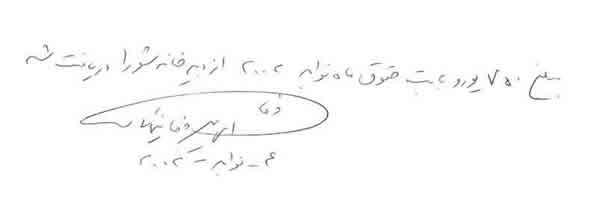 مبلغ ۷۵۰ یورو بابت حقوق ماه نوامبر ۲۰۰۲ از دبیرخانه شورا دریافت شد
وفا
وفا یغمائی
نوامبر - ۲۰۰۲